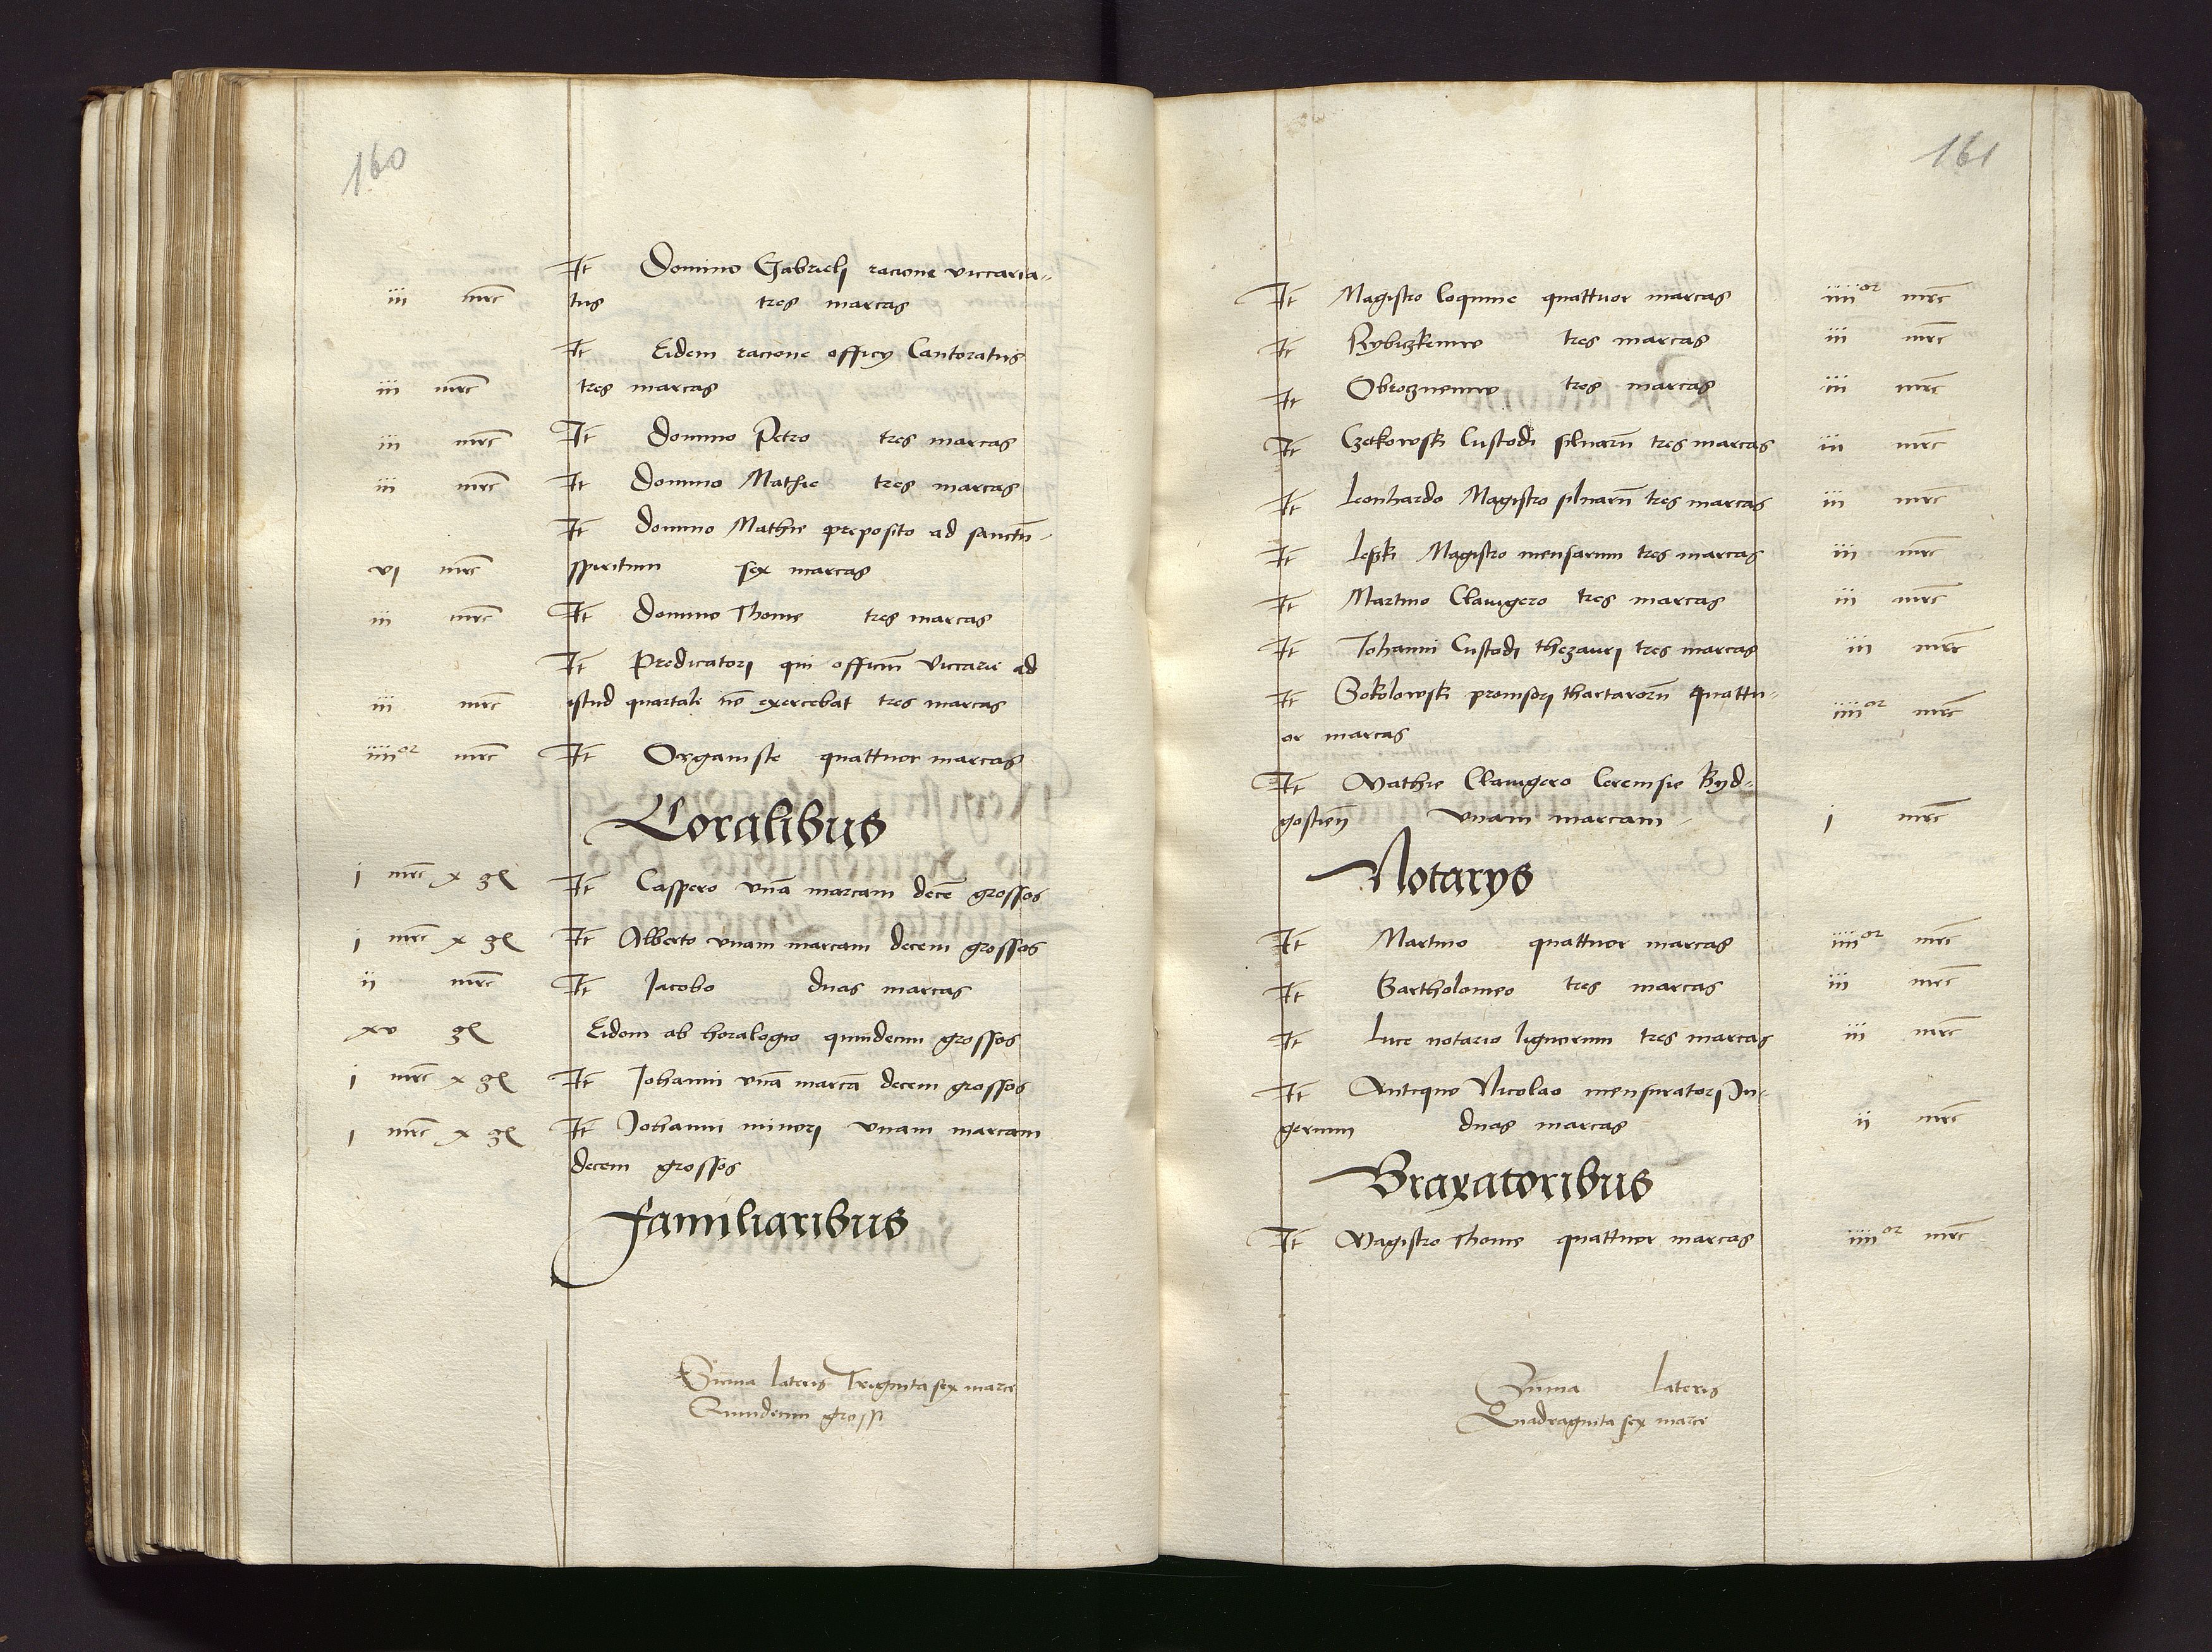 160
It Domino Gabrieli racione viccaria-
iii mrc tus tres marcas
It Eidem racione officy Cantoratus
iii mrc tres marcas
iii mrc It Domino Petro tres marcas
iii mrc It Domino Mathie tres marcas
It Domino Mathie preposito ad sanctu-
vi mrc spiritum sex marcas
iii mrc It Domino Thome tres marcas
It Predicatori qui officiu viccarie ad
iii mrc istud quartale no exercebat tres marcas
iiii or mrc It Organiste quattuor marcas
Coralibus
i mrc x gl It Caspero vna marcam dece grossos
i mrc x gl It Alberto vnam marcam decem grossos
ii mrc It Jacobo duas marcas
xv gl Eidem ab horalogio quindecim grossos
i mrc x gl It Johanni vna marca decem grossos
i mrc x gl It Johanni minori vnam marcam
decem grossos
Familiaribus
Suma lateris Triginta sex marce
Quindecim grossi
161
It Magistro coquine quattuor marcas iiii or mrc
It Rybiczkemu tres marcas iii mrc
It Obrocznemu tres marcas iii mrc
It Czekowski Custodi siluaru tres marcas iii mrc
It Leonhardo Magistro siluaru tres marcas iii mrc
It Lepski Magistro mensarum tres marcas iii mrc
It Martino Clauigero tres marcas iii mrc
It Johanni Custodi thezauri tres marcas iii mrc
It Sokolowski prouisori thartaroru quattu- iiii or mrc
or marcas
It Mathie Clauigero Cerevisie Byd-
gostien vnam marcam i mrc
Notarys
It Martino quattuor marcas iiii or mrc
It Bartholomeo tres marcas iii mrc
It Luce notario lignorum tres marcas iii mrc
It Antiquo Nicolao mensuratori Ju-
gerum duas marcas ii mrc
Braxatoribus
It Magistro Thome quattuor marcas iiii or mrc
Suma lateris
Quadraginta sex marce